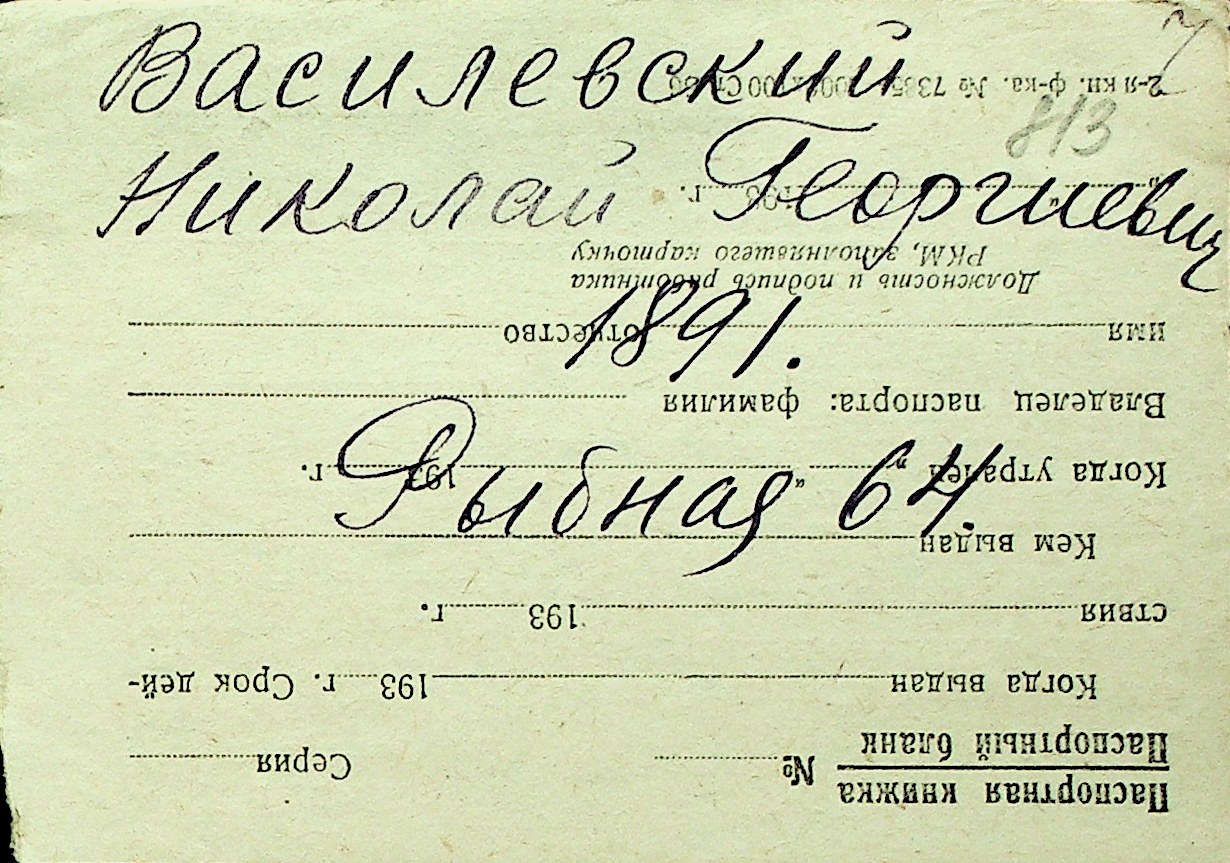 Василевский
Николай Георгиевич
1891.
Рыбная 64.
813
Паспортная книжка
Паспортный бланк
№ Серия
Когда выдан 193 г. Срок дей-
ствия 193 г.
Кем выдан
Когда утрачен „ “ 193 г.
Владелец паспорта: фамилия
имя отчество
Должность и подпись работника
РКМ, заполнявшего карточку
„ “ 193 г.
2-я кн. ф-ка. №